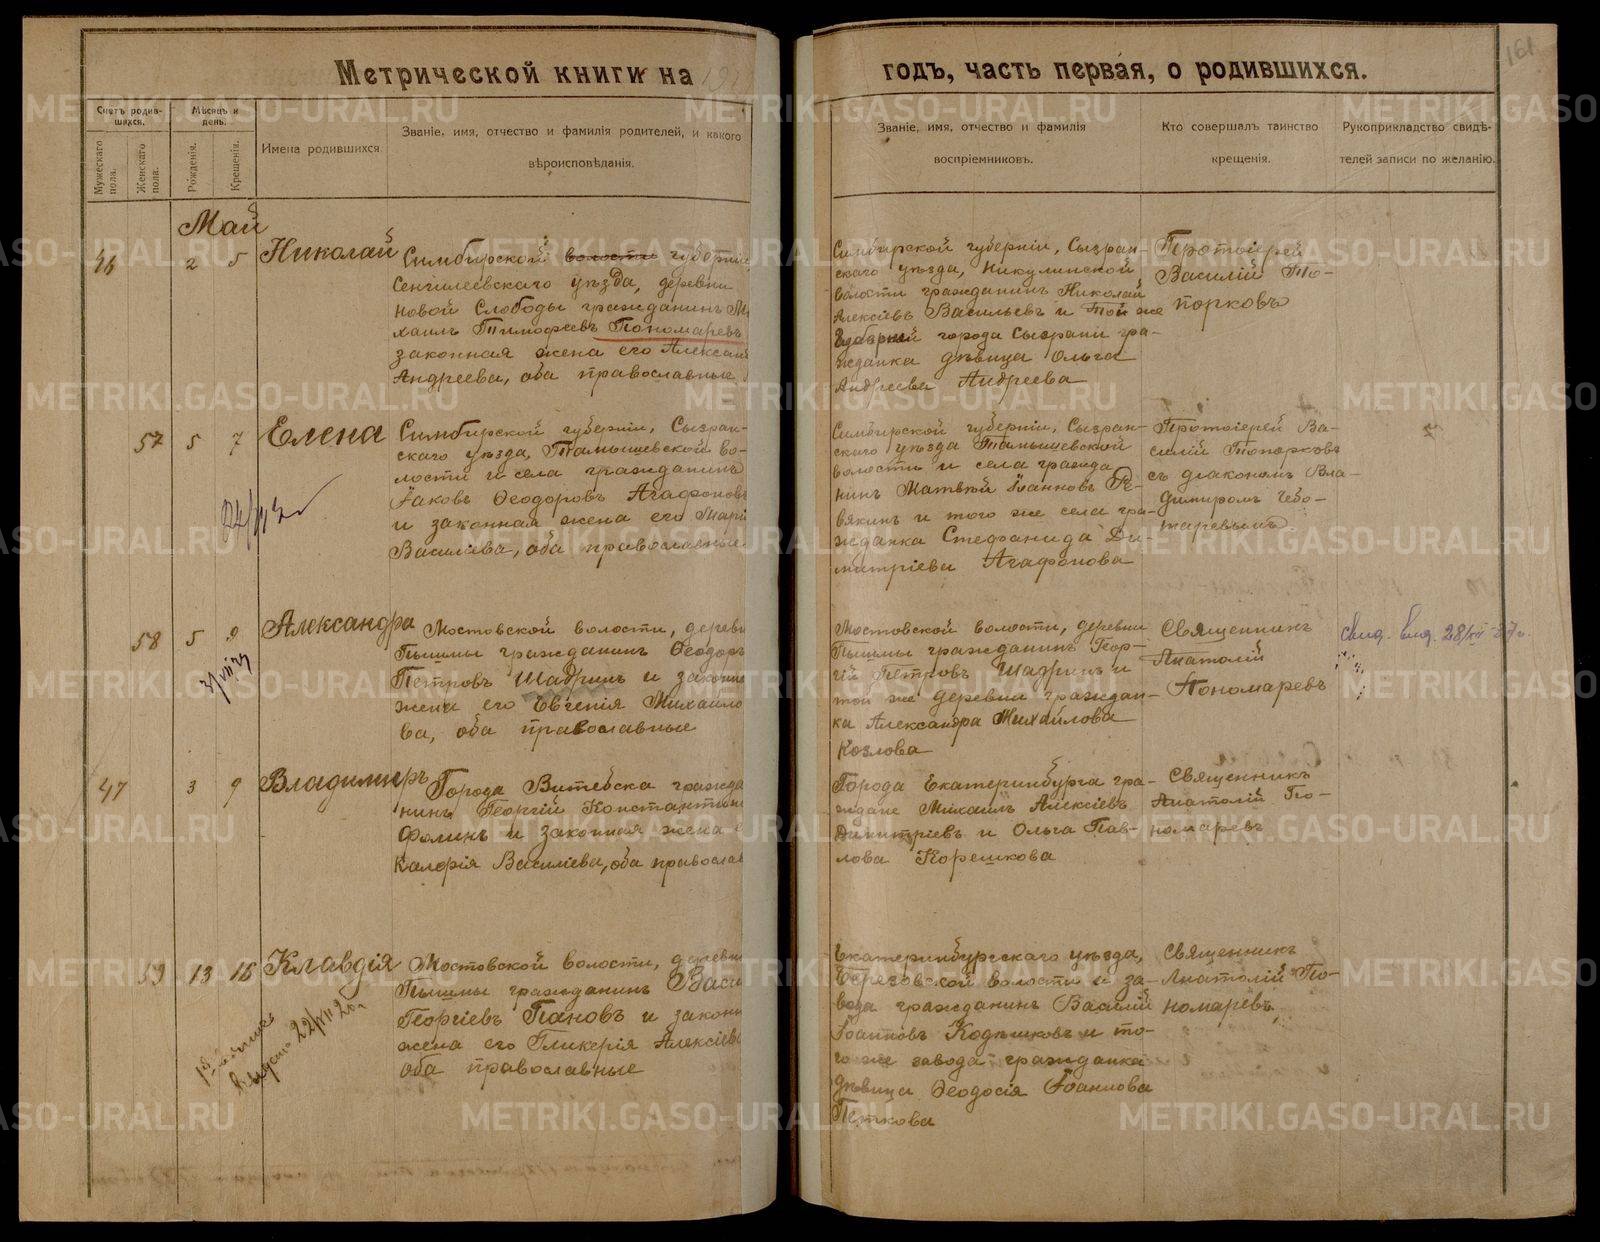 Метрической книги на 192
годъ, часть первая, о родившихся.
161
Счетъ родив-
шихся.
Мѣсяцъ и
день.
Мужескаго
пола.
Женскаго
пола.
Рожденія.
Крещенія.
Имена родившихся.
Званіе, имя, отчество и фамилія родителей, и какого
вѣроисповѣданія.
Званіе, имя, отчество и фамилія
воспріемниковъ.
Кто совершалъ таинство
крещенія.
Рукоприкладство свидѣ-
телей записи по желанію.
Май
46 2 5 Николай
Симбирской волости губерніи
Сенгилеевскаго уѣзда, деревни
Новой Слободы гражданинъ Ми
хаилъ Тимофеевъ Пономаревъ
законная жена его Алексан
Андреева, оба православные
Симбирской губерніи, Сызран-
скаго уѣзда, Никулинской
волости гражданинъ Николай
Алексіевъ Васильевъ и той же
губерніи города Сызрани гра-
жданка дѣвица Ольга
Андреева Андреева
Протоіерей
Василій То-
порковъ
57 5 7 Елена
Симбирской губерніи, Сызран-
скаго уѣзда, Томышевской во-
лости и села гражданинъ
Іаковъ Ѳеодоровъ Агафоновъ
и законная жена его Марі
Василіева, оба православные
Симбирской губерніи, Сызран-
скаго уѣзда Томышевской
волости и села гражда
нинъ Матвѣй Іоанновъ Ре-
вякинъ и того же села гра-
жданка Стефанида Ди-
митріева Агафонова
Протоіерей Ва-
силій Топорковъ
съ діакономъ Вла-
димиромъ Чебо-
таревымъ
58 5 9 Александра
Мостовской волости, деревн
Пышмы гражданинъ Ѳеодоръ
Петровъ Шадринъ и законна
жена его Евгенія Михайло
ва, оба православные
Мостовской волости, деревни
Пышмы гражданинъ Геор-
гій Петровъ Шадринъ и
той же деревни граждан-
ка Александра Михайлова
Козлова
Священникъ
Анатолій
Пономаревъ
свид. выд. 28/XII-37г.
47 3 9 Владимиръ
Города Витебска гражда
нинъ Георгій Константино
Фолинъ и законная жена е
Калерія Василіева, оба православ
Города Екатеринбурга гра-
ждане Михаилъ Алексіевъ
Димитріевъ и Ольга Пав-
лова Корешкова
Священникъ
Анатолій По-
номаревъ
59 13 16 Клавдія
Мостовской волости, деревни
Пышмы гражданинъ Васи
Георгіевъ Пановъ и законн
жена его Гликерія Алексіева
оба православные
22/VII 26г.
Екатеринбургскаго уѣзда,
Березовской волости и за-
вода гражданинъ Василій
Іоанновъ Кодѣшковъ и то-
го же завода гражданка
дѣвица Ѳеодосія Іоаннова
Петкова
Священникъ
Анатолій По-
номаревъ
METRIKI.GASO-URAL.RU